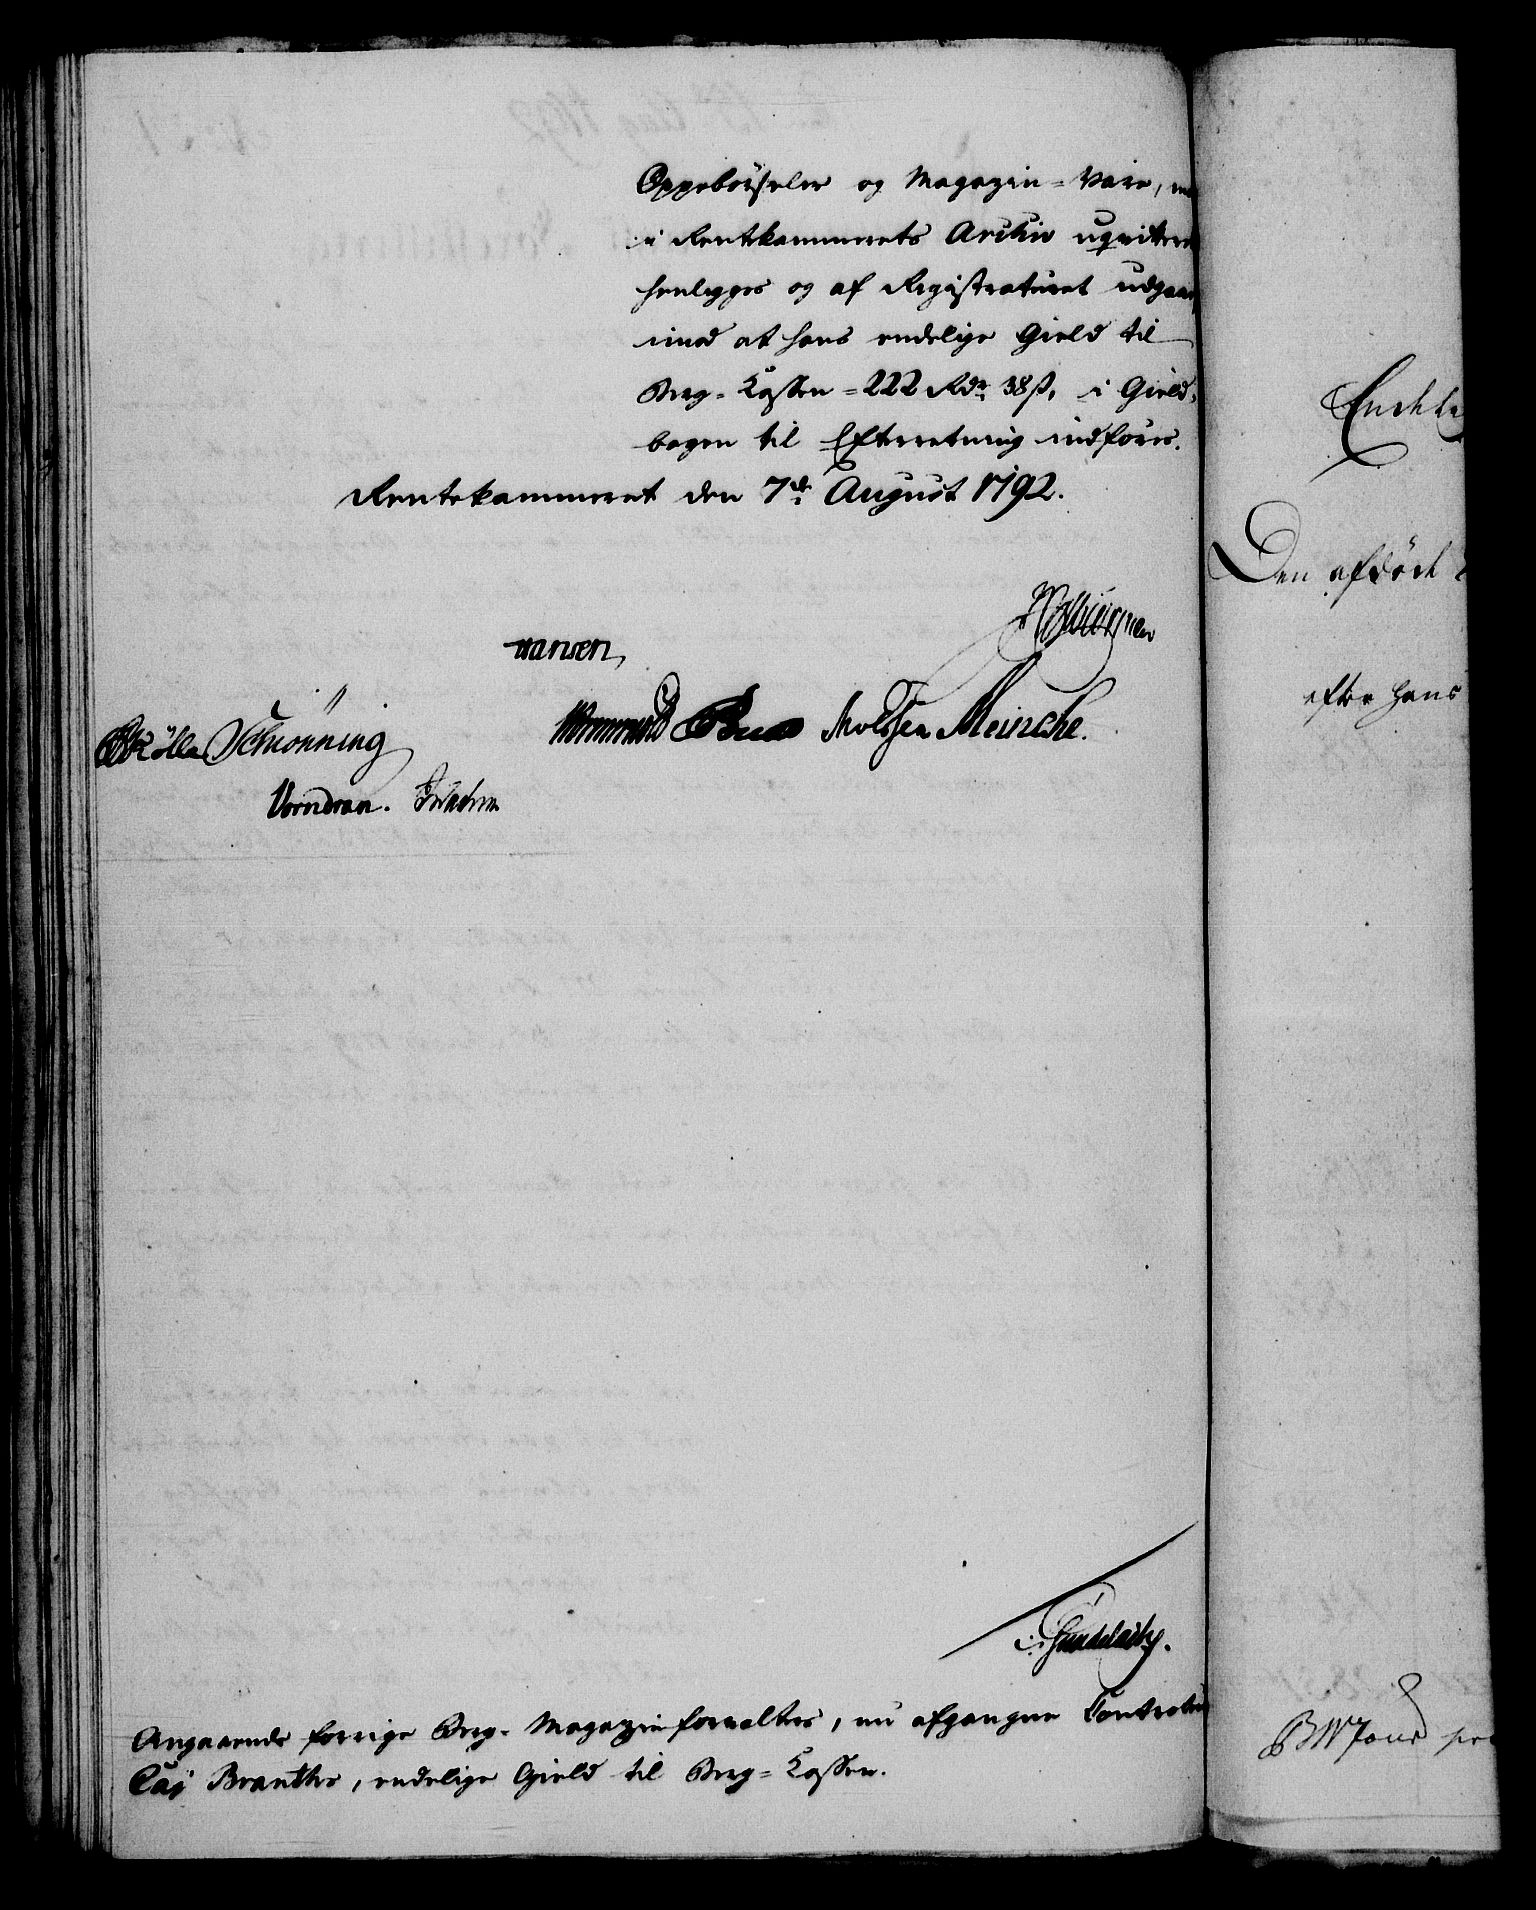 Oppebörseler og Magazin=Vare, maa
i Rentekammerets Archiv uqviterede
henlegges og af Registraturet udgaae,
imod at hans endelige Gield til
Berg-Kassen = 222 Rdr 38 s, i Gield-
bogen til Efterretning indföres.
Rentekammeret den 7de August 1792.
Hansen
Schiönning
Wormskiold Moldsen Meinche.
Vorndran.
Angaaende forrige Berg-Magazinforvalter, nu afgangne Controleur
Caj Branths, endelige Gield til Berg-Kassen.
Den afdöde
efter hans